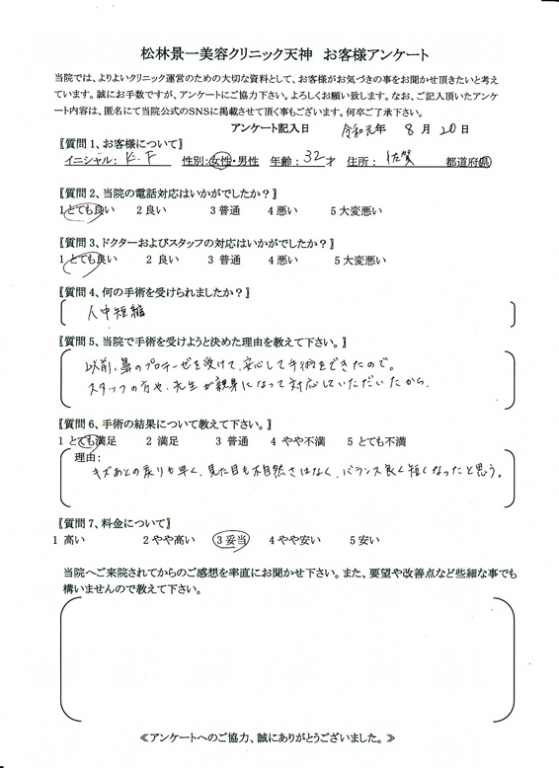 松林景一美容クリニック天神　お客様アンケート
当院では、よりよいクリニック運営のための大切な資料として、お客様がお気づきの事をお聞かせ頂きたいと考え
ています。誠にお手数ですが、アンケートにご協力下さい。よろしくお願い致します。なお、ご記入頂いたアンケ
ート内容は、匿名にて当院公式のSNSに掲載させて頂く事もございます。何卒ご了承下さい。
アンケート記入日　令和元年 8月20日
【質問1、お客様について】
イニシャル: K.F　性別:女性・男性　年齢: 32才　住所: 佐賀　都道府県
【質問2、当院の電話対応はいかがでしたか？】
1とても良い　2良い　3普通　4悪い　5大変悪い
【質問3、ドクターおよびスタッフの対応はいかがでしたか？】
1とても良い　2 良い　3 普通　4悪い　5大変悪い
【質問4、何の手術を受けられましたか？】
人中短縮
【質問5、当院で手術を受けようと決めた理由を教えて下さい。】
以前、鼻のプロテーゼを受けて、安心して手術をできたので。
スタッフの方や、先生が親身になって対応していただいたから。
【質問6、手術の結果について教えて下さい。】
1 とても満足　2 満足　3 普通　4 やや不満　5 とても不満
理由:
キズあとの戻りも早く、見た目も不自然さはなく、バランス良く短くなったと思う。
【質問7、料金について】
1 高い　2やや高い　3妥当　4やや安い　5安い
当院へご来院されてからのご感想を率直にお聞かせ下さい。また、要望や改善点など些細な事でも
構いませんので教えて下さい。
≪アンケートへのご協力、誠にありがとうございました。≫